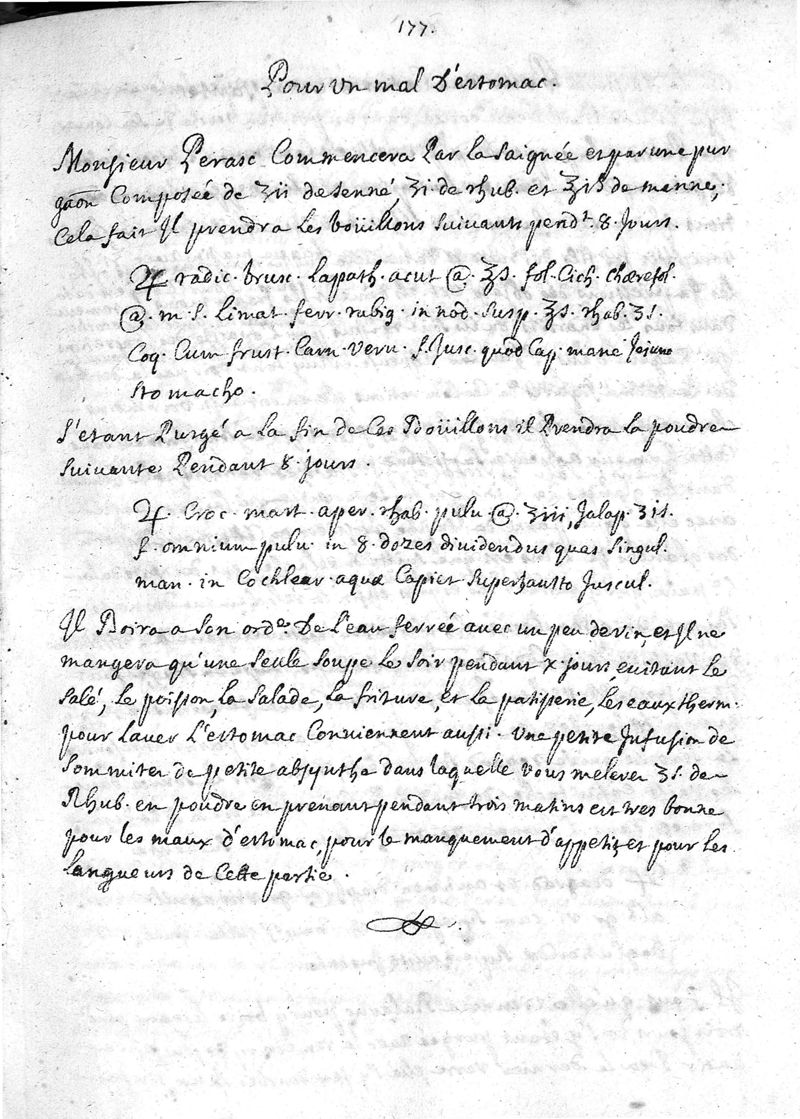 177.
Pour Un mal D'estomac.
Monsieur Perasc Commencera Par la Saignée et par une pur
gaõn Composée de ʒii de senné, ʒi de rhub. et ℥iß de manne,
Cela fait Il prendra les boüillons suivants pendt. 8. Jours.
♃ radic. brusc. lapath. acut @. ℥s. fol. Cich. chærefol.
@. m. s. limat. ferr. rubig. in nod. susp. ℥s. rhab. ʒs.
Coq. Cum frust. Carn. verv. f. Jusc. quod Cap. mane Jejuno
stomacho.
S'etant Purgé a la fin de Ces Boüillons il Prendra la poudre
suivante Pendant 8. jours.
♃. Croc. mart. aper. rhab. pulv @. ʒiii, Jalap. ʒis.
f. omnium pulv. in 8. dozes dividendus quas singul.
man. in Cochlear. aquæ Capiet Juscul.
Il Boira a son orde. De l'eau ferrée avec un peu de vin, et Il ne
mangera qu'une seule soupe le soir pendant x. jours, euitant le
salé, le poisson, la salade, la friture, et la patisserie, les eaux therm.
pour laver L'estomac Conviennent aussi. Une petite Infusion de
sommitez de petite absynthe dans laquelle vous melerez ʒs. de
Rhub. en poudre en prenant pendant trois matins est tres bonne
pour les maux d'estomac, pour le manquement d'appetit, et pour les
langueurs de Cette partie.